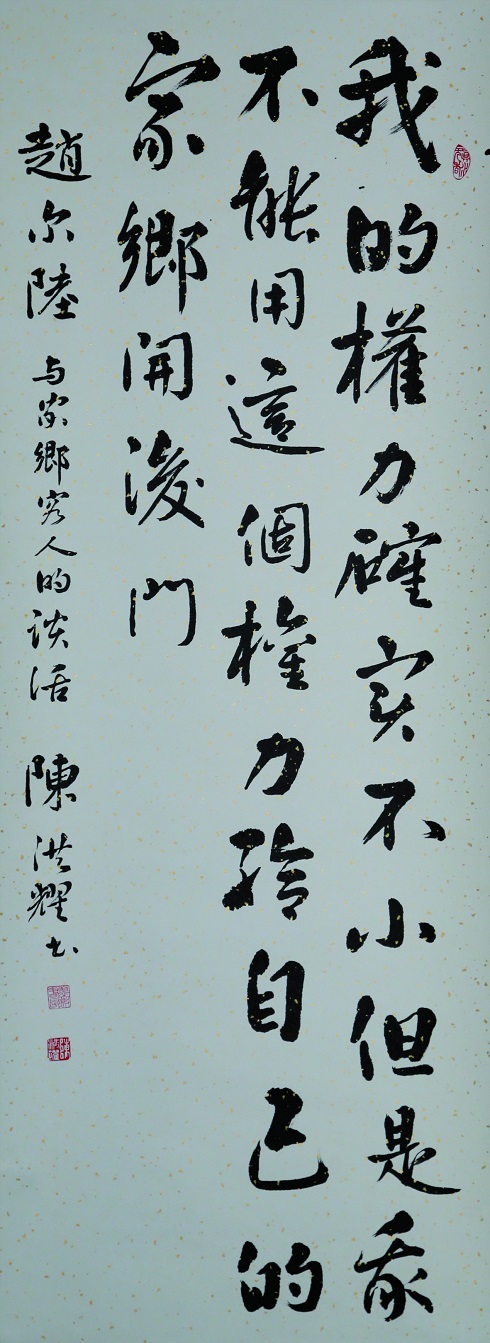 我的權力確实不小但是我
不能用這個權力给自己的
家鄉開後門
趙尔陸 与家鄉客人的谈话 陳洪耀书